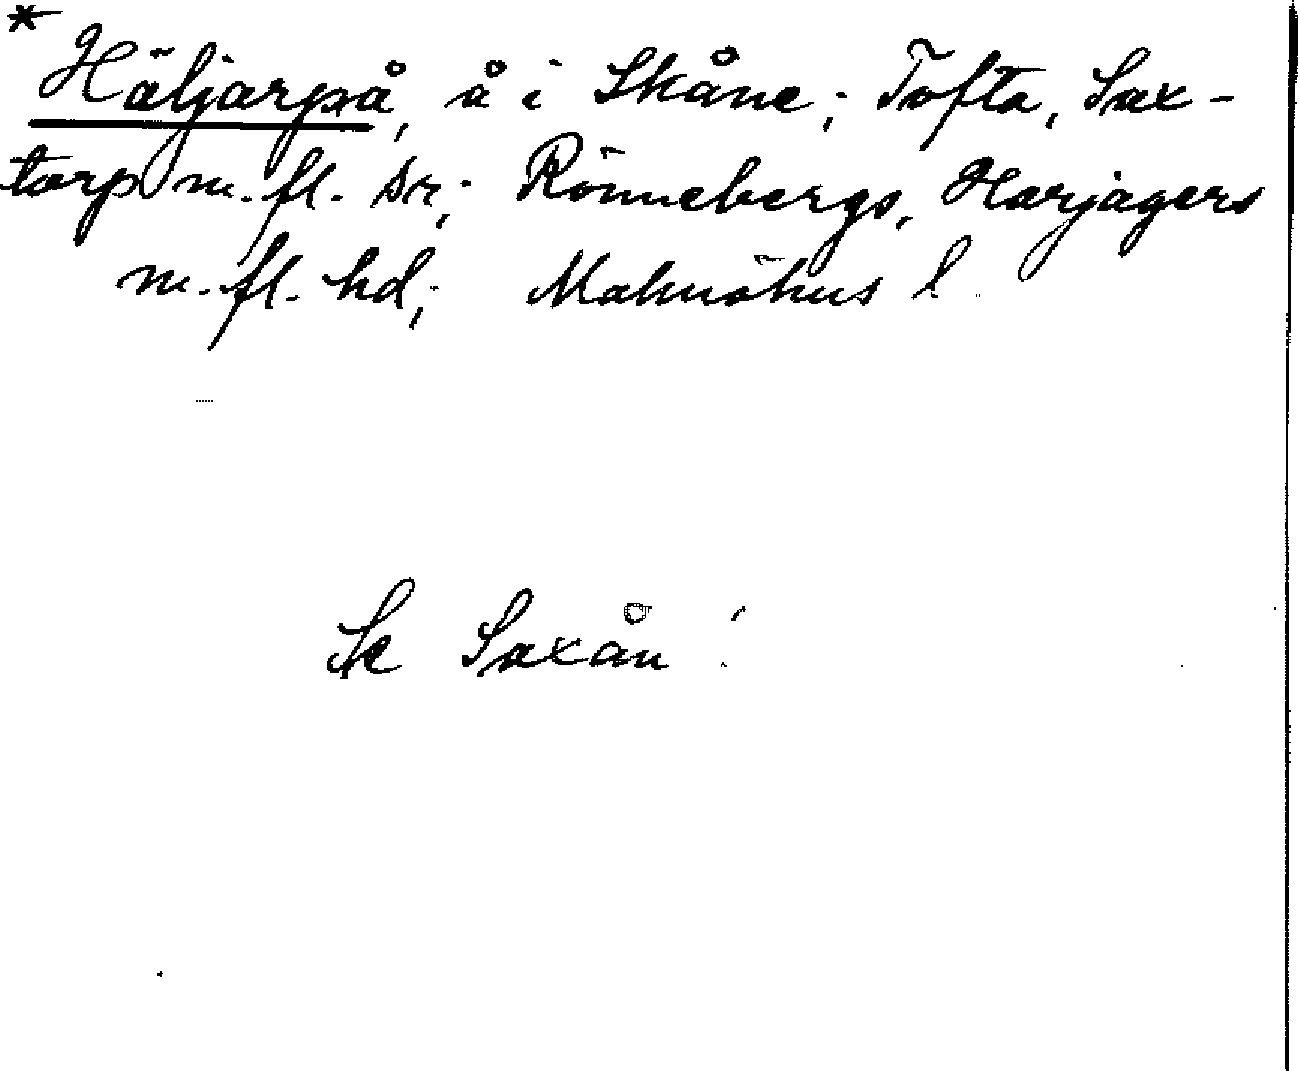 * Häljarpå, å i Skåne; Tofta, Sax-
torp m. fl. sr; Rönnebergs, Harjagers
m. fl. hd; Malmöhus l.
Se Saxån!